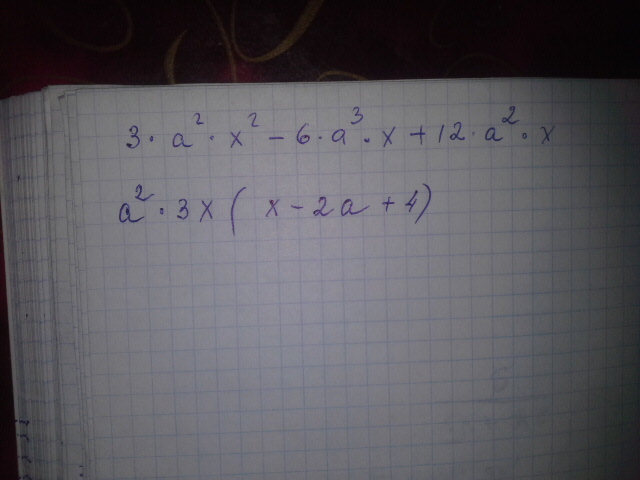 3 · a² · x² − 6 · a³ · x + 12 · a² · x
a² · 3x ( x − 2a + 4)